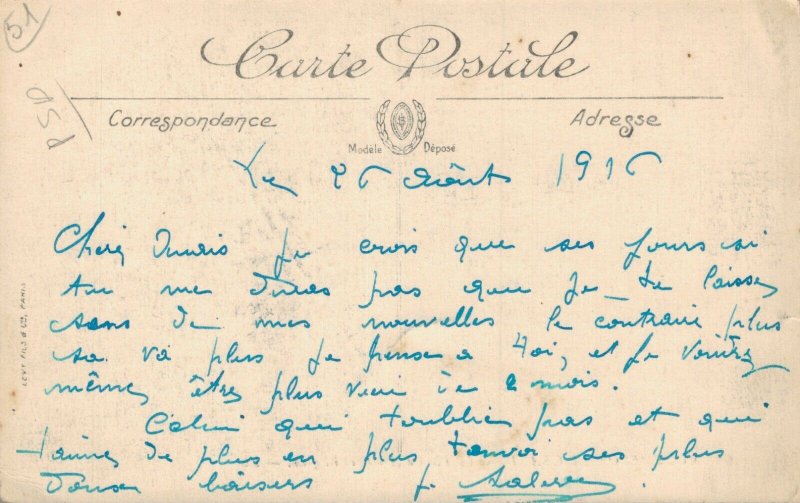 51
PSD
Carte Postale
Correspondance
Adresse
Modèle Déposé
Le 26 Août 1916
je crois que ses jours si
tu me diras pas que je te laisse
sans de mes nouvelles le contraire plus
sa va plus je pense a toi, et je voudrez
mêmes êtres plus vieu de 2 mois.
Celui qui t'oublie pas et qui
t'aimes de plus en plus t'envoi ses plus
doux baisers
LEVY FILS & Cie, PARIS